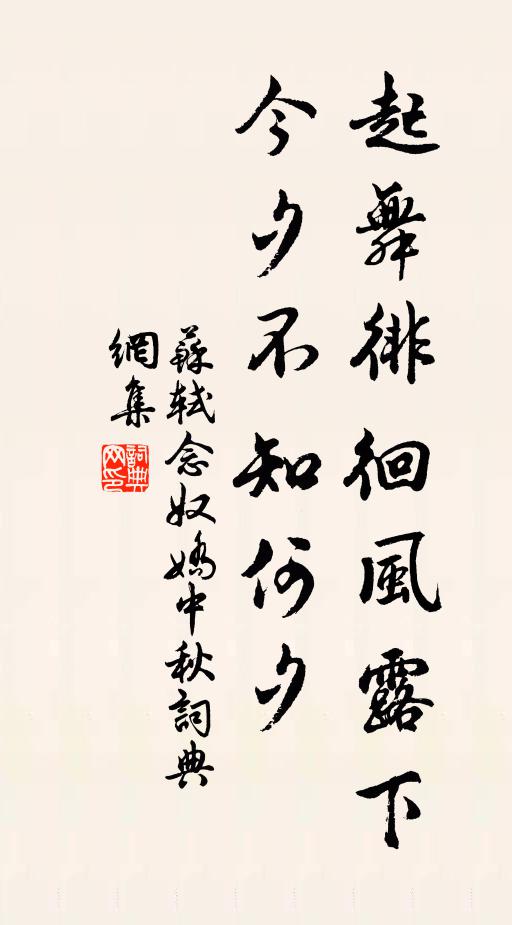 起舞徘徊風露下
今夕不知何夕
蘇軾念奴嬌中秋詞典
網集
詞典网印